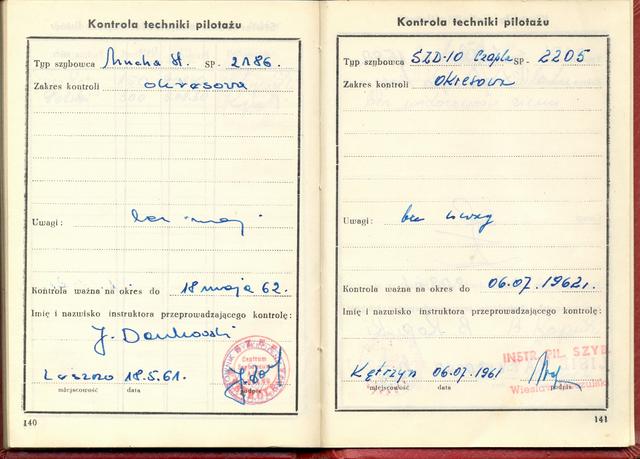 Kontrola techniki pilotażu
Typ szybowca Mucha St. SP - 2186.
Zakres kontroli okresowa
Uwagi: bez uwag
Kontrola ważna na okres do 18 maja 62.
Imię i nazwisko instruktora przeprowadzającego kontrolę:
J. Dankowski
Centrum
Leszno 18.5.61.
miejscowość data podpis
140
Kontrola techniki pilotażu
Typ szybowca SZD-10 Czapla SP - 2205
Zakres kontroli okresowa
Uwagi: bez uwag
Kontrola ważna na okres do 06.07.1962r.
Imię i nazwisko instruktora przeprowadzającego kontrolę:
INSTR. PIL. SZYB.
Kętrzyn 06.07.1961
Wiesław
miejscowość data podpis
141